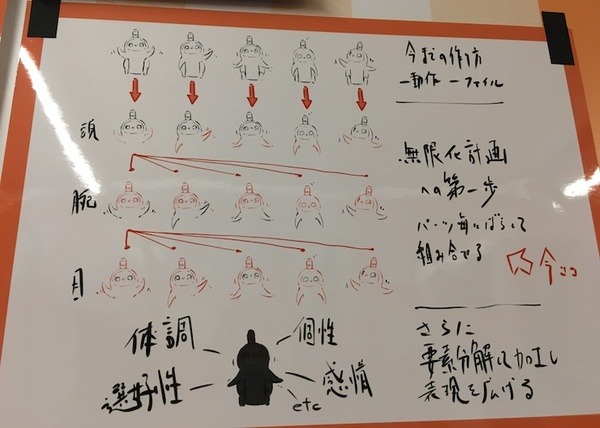 今までの作り方
一動作 一ファイル
頭
無限化計画
への第一歩
パーツ毎にばらして
組み合せる
今ココ
腕
目
体調
個性
選好性
感情
etc
さらに
要素分解して加工し
表現を広げる